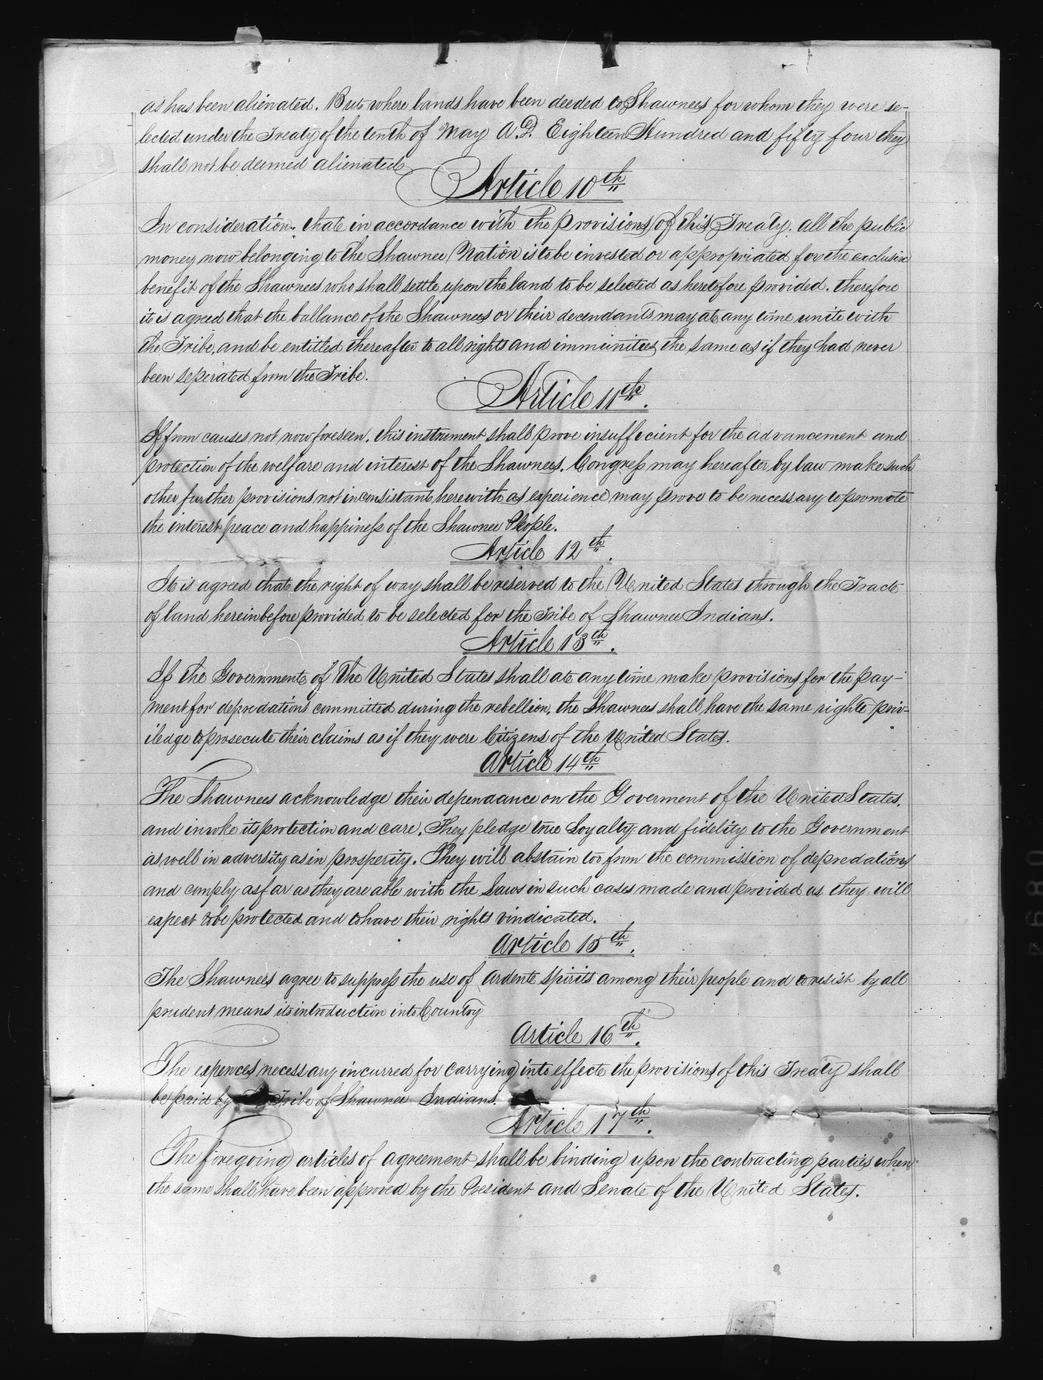 as has been alienated. But where lands have been deeded to Shawnees for whom they were se-
lected under the Treaty of the tenth of May A.D. Eighteen Hundred and fifty four they
shall not be deemed alienated
Article 10th
In consideration, that in accordance with the provisions of this Treaty. all the public
money now belonging to the Shawnee Nation is to be invested or appropriated for the exclusive
benefit of the Shawnees who shall settle upon the land to be selected as heretofore provided. therefore
it is agreed that the ballance of the Shawnees or their decendants may at any time unite with
the Tribe, and be entitled thereafter to all rights and immunities, the same as if they had never
been seperated from the Tribe.
Article 11th.
If from causes not now foreseen, this instrument shall prove insufficient for the advancement and
protection of the welfare and interest of the Shawnees. Congress may hereafter by law make such
other further provisions not inconsistant herewith as experience may prove to be necessary to promote
the interest peace and happiness of the Shawnee People.
Article 12th.
It is agreed that the right of way shall be reserved to the United States through the Tract
of land hereinbefore provided to be selected for the Tribe of Shawnee Indians.
Article 13th.
If the Government of the United States shall at any time make provisions for the pay-
ment for depredations committed during the rebellion, the Shawnees shall have the same right & priv-
iledge to prosecute their claims as if they were Citizens of the United States.
Article 14th
The Shawnees acknowledge their dependance on the Goverment of the United States.
and invoke its protection and care. They pledge true Loyalty and fidelity to the Government
as well in adversity as in prosperity. They will abstain too from the commission of depredations
and comply as far as they are able with the Laws in such cases made and provided as they will
expect to be protected and to have their rights vindicated.
Article 15th.
The Shawnees agree to suppress the use of Ardent spirits among their people and to resist by all
prudent means its introduction into Country
Article 16th.
The expences necessary incurred for carrying into effect the provisions of this Treaty shall
be paid by Tribe of Shawnee Indians.
Article 17th.
The foregoing articles of agreement shall be binding upon the contracting parties when
the same shall have been approved by the President and Senate of the United States.